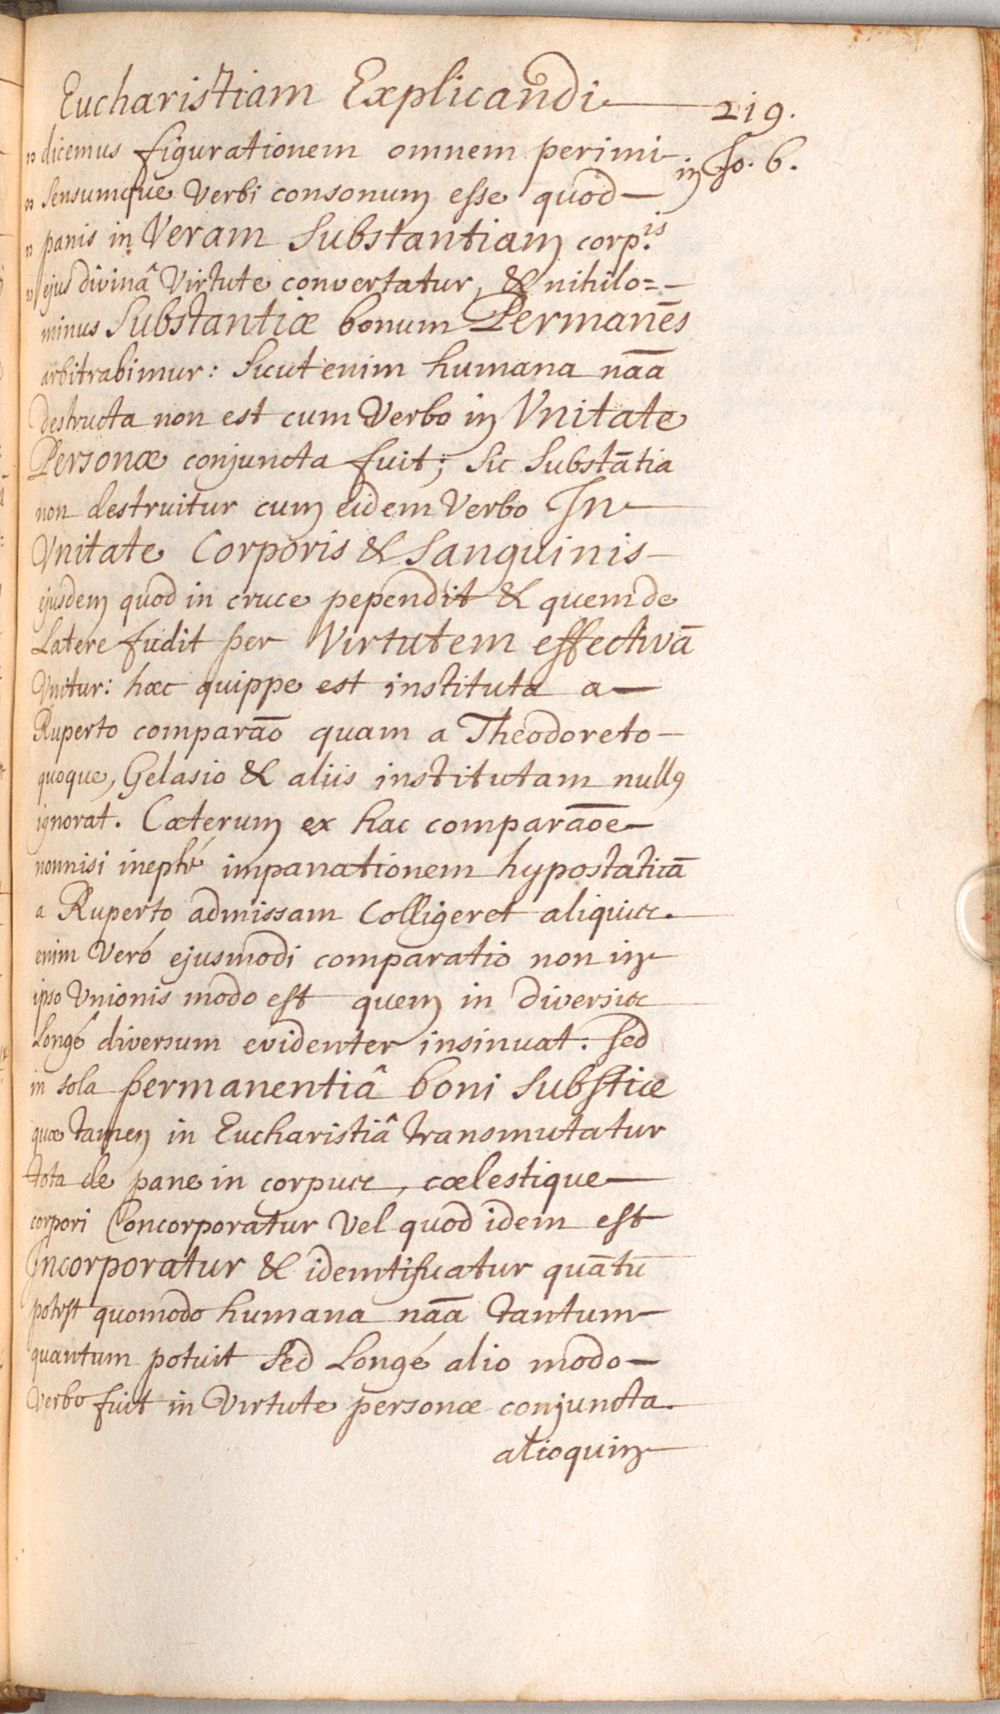 Eucharistiam Explicandi 219.
" dicemus figurationem omnem perimi in Jo. 6.
" sensumque Verbi consonum esse quod
" panis in Veram Substantiam corp.is
" ejus divinâ Virtute convertatur, & nihilo=
minus Substantiæ bonum Permanēs
arbitrabimur: Sicut enim humana nāa
destructa non est cum Verbo in Vnitate
Personæ conjuncta fuit; sic Substātia
non destruitur cum eidem Verbo In
Vnitate Corporis & Sanguinis
ejusdem quod in cruce pependit & quem de
Latere fudit per Virtutem effectivā
Vnitur: hæc quippe est instituta a
Ruperto comparāo quam a Theodoreto
quoque, Gelasio & aliis institutam nullus
ignorat. Cæterum ex hac comparāoe
nonnisi ineptè impanationem hypostaticā
a Ruperto admissam Colligeret aliquis.
enim Veró ejusmodi comparatio non in
ipso Vnionis modo est quem in diversis
Longé diversum evidenter insinuat: sed
in sola permanentiâ boni Substiæ
quæ tamen in Eucharistiâ transmutatur
tota de pane in corpus, cælestique
corpori Concorporatur Vel quod idem est
Incorporatur & identificatur quātū
potest quomodo humana nāa tantum
quantum potuit sed Longé alio modo
Verbo fuit in Virtute personæ conjuncta.
alioquin